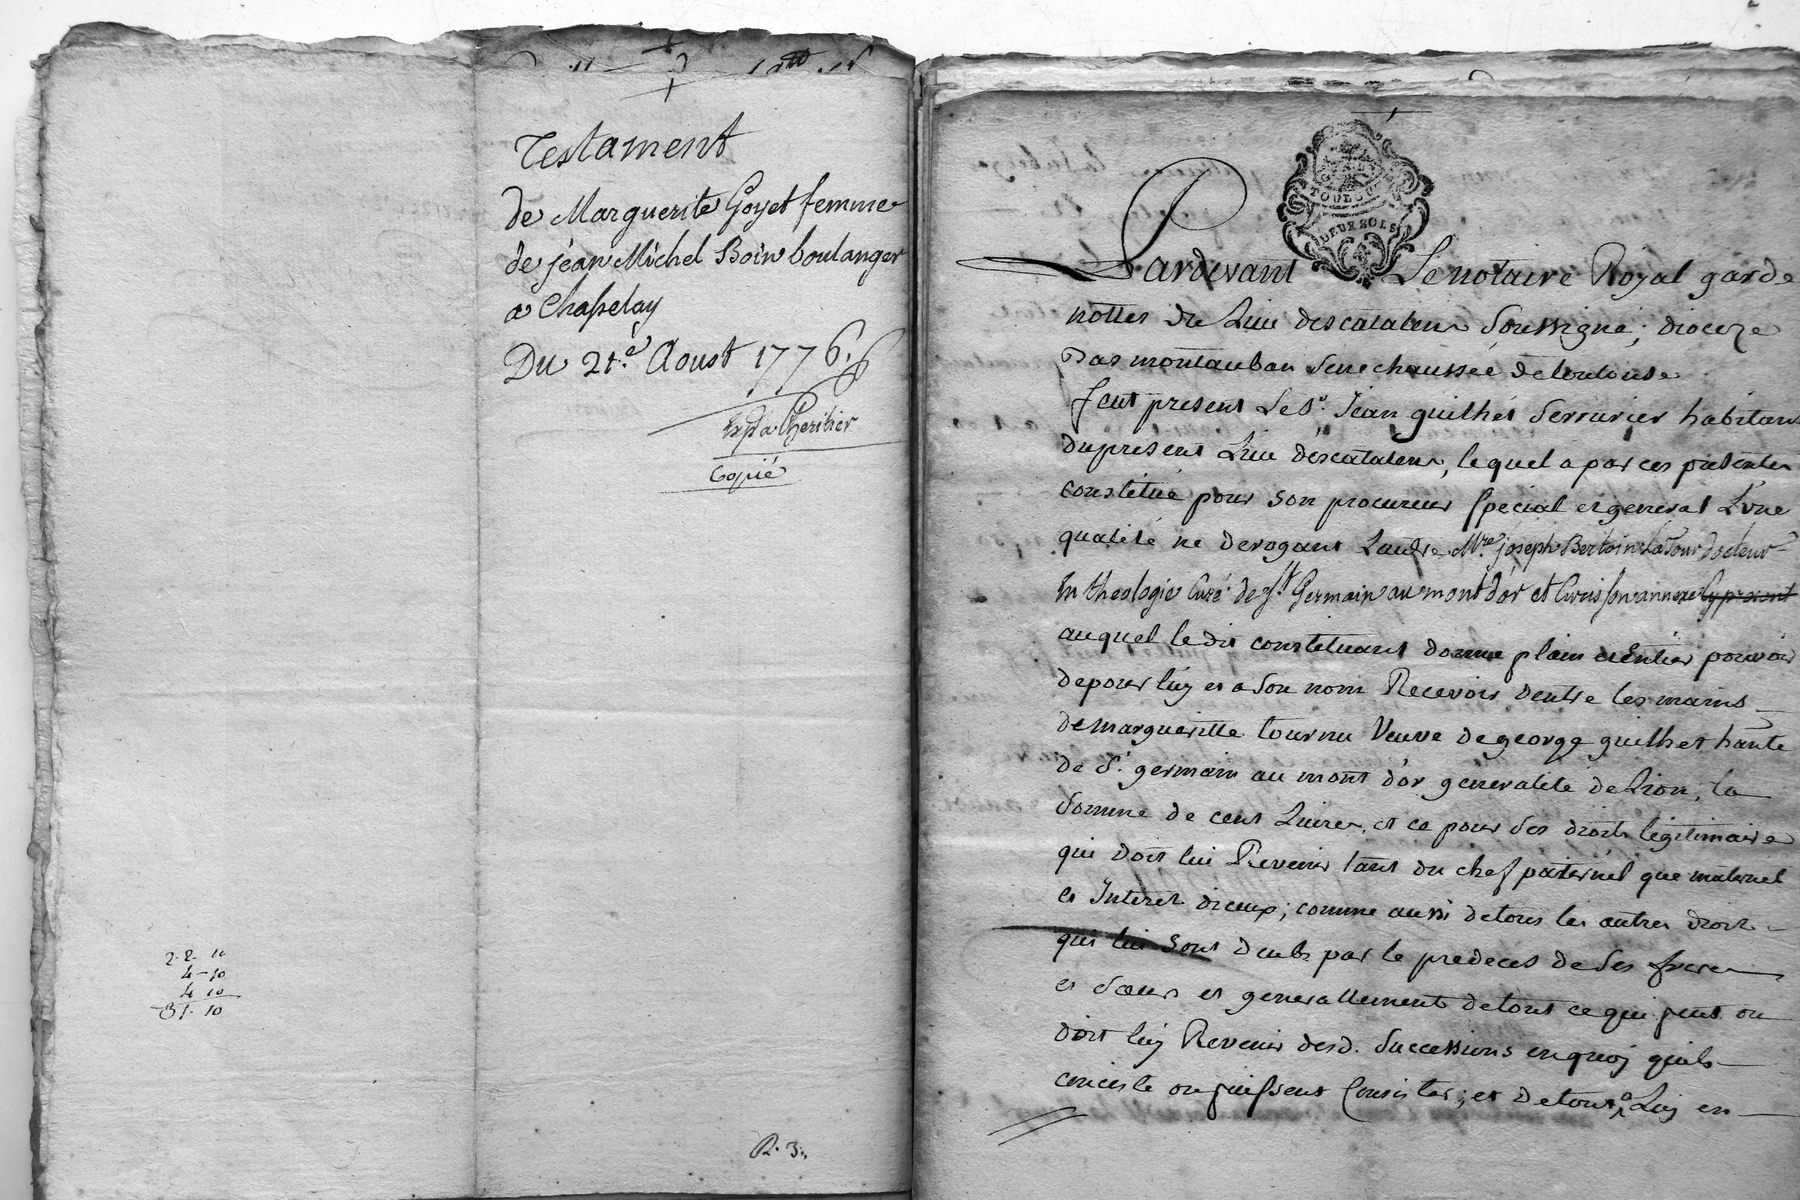 Testament
de Marguerite Goyet femme
de jean Michel Boin boulanger
a Chasselay
Du 21.e Aoust 1776.
Expd a l'heritier
Copié
2-2- 10
4-10
4 10
31-10
R. 3.
TOULOUSE
DEUX SOLS
Pardevant Le notaire Royal garde
nottes du Lieu descatalens Soussigné; dioceze
Bas montauban Senechaussée de toulouse
feut present Le Sr. Jean guilhet Serrurier habitant
du present Lieu descatalens, lequel a par ces presentes
constitué pour son procureur special et general L'une
qualité ne derogant L'autre Mre. joseph Bertoin LaTour docteur
En theologie Curé de St. Germain au mont d'or et Curis son annexe cy present
auquel le dit constituant donne plain et Entier pouvoir
de pour luy et a Son nom Recevoir dentre les mains
de margueritte tournu Veuve de george guilhet hante
de St. germain au mont d'or generalité de Lion, la
Somme de cent Livres, et ce pour Ses droits legitimaire
qui doit lui Revenir tant du chef paternel que maternel
et Interet diceux; comme aussi de tous les autres droits
qui lui Sont deubs par le predeces de Ses freres
et Sœurs et generallement de tout ce qui peut ou
doit luy Revenir desd. Successions en quoy quils
conciste ou puissent Consister; et de tout Luy en